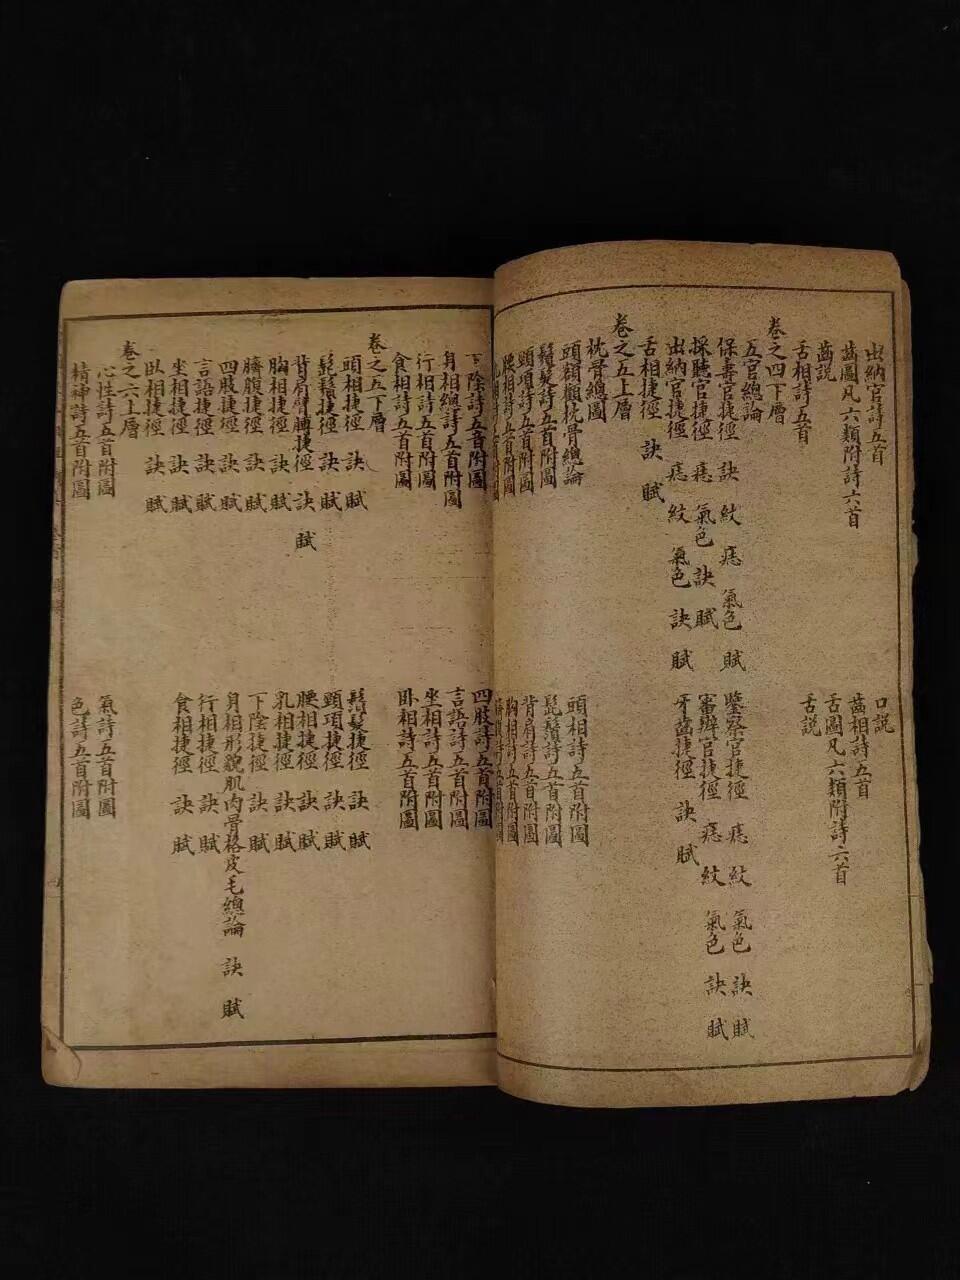 出納官詩五首 口說
齒圖凡六類附詩六首 齒相詩五首
齒說 舌圖凡六類附詩六首
舌相詩五首 舌說
卷之四下層
五官總論 鑒察官捷徑 痣紋 氣色 訣 賦
保壽官捷徑 訣 紋 痣 氣色 賦 審辦官捷徑 痣 紋 氣色 訣 賦
採聽官捷徑 痣 氣色 訣 賦 牙齒捷徑 訣 賦
出納官捷徑 痣 紋 氣色 訣 賦
舌相捷徑 訣 賦
卷之五上層
枕骨總圖
頭額顴枕骨總論 頭相詩五首附圖
鬚髮詩五首附圖 髭鬚詩五首附圖
頸項詩五首附圖 背肩詩五首附圖
腰相詩五首附圖 胸相詩五首附圖
下陰詩五首附圖 四肢詩五首附圖
身相總詩五首附圖 言語詩五首附圖
行相詩五首附圖 坐相詩五首附圖
食相詩五首附圖 卧相詩五首附圖
卷之五下層
頭相捷徑 訣 賦 鬚髮捷徑 訣 賦
髭鬚捷徑 訣 賦 頸項捷徑 訣 賦
背肩臂膊捷徑 訣 賦 腰相捷徑 訣 賦
胸相捷徑 訣 賦 乳相捷徑 訣 賦
臍腹捷徑 訣 賦 下陰捷徑 訣 賦
四肢捷徑 訣 賦 身相形貌肌肉骨格皮毛總論 訣 賦
言語捷徑 訣 賦 行相捷徑 訣 賦
坐相捷徑 訣 賦 食相捷徑 訣 賦
臥相捷徑 訣 賦
卷之六上層
心性詩五首附圖 氣詩五首附圖
精神詩五首附圖 色詩五首附圖